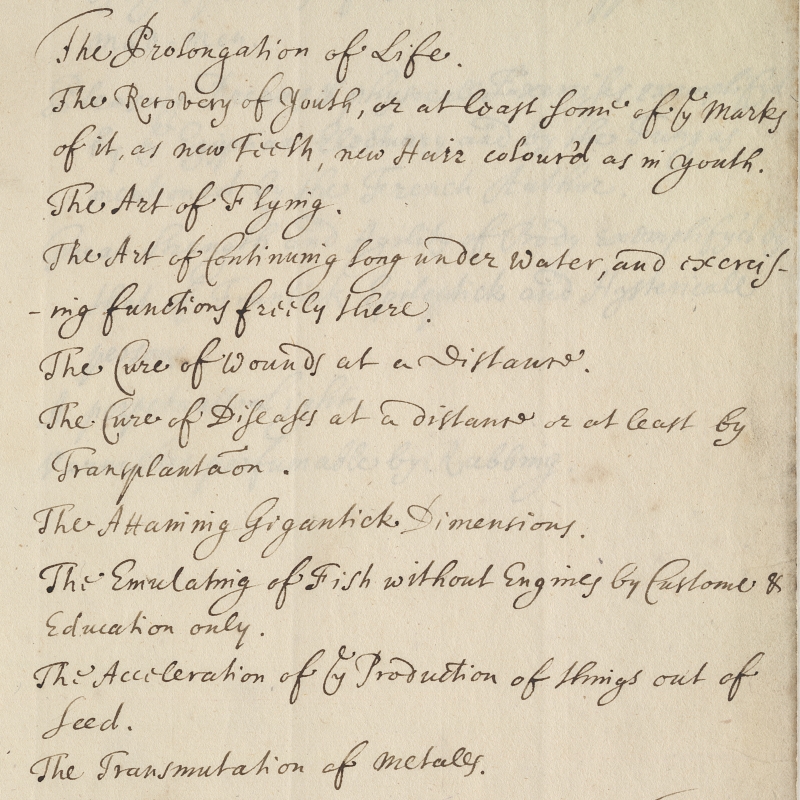 The Prolongation of Life.
The Recovery of Youth, or at least some of ye Marks
of it, as new Teeth, new Hair colour'd as in youth.
The Art of Flying.
The Art of Continuing long under water, and exercis-
-ing functions freely there.
The Cure of Wounds at a Distance.
The Cure of Diseases at a distance or at least by
Transplantãon.
The Attaining Gigantick Dimensions.
The Emulating of Fish without Engines by Custome &
Education only.
The Acceleration of ye Production of things out of
Seed.
The Transmutation of Metalls.